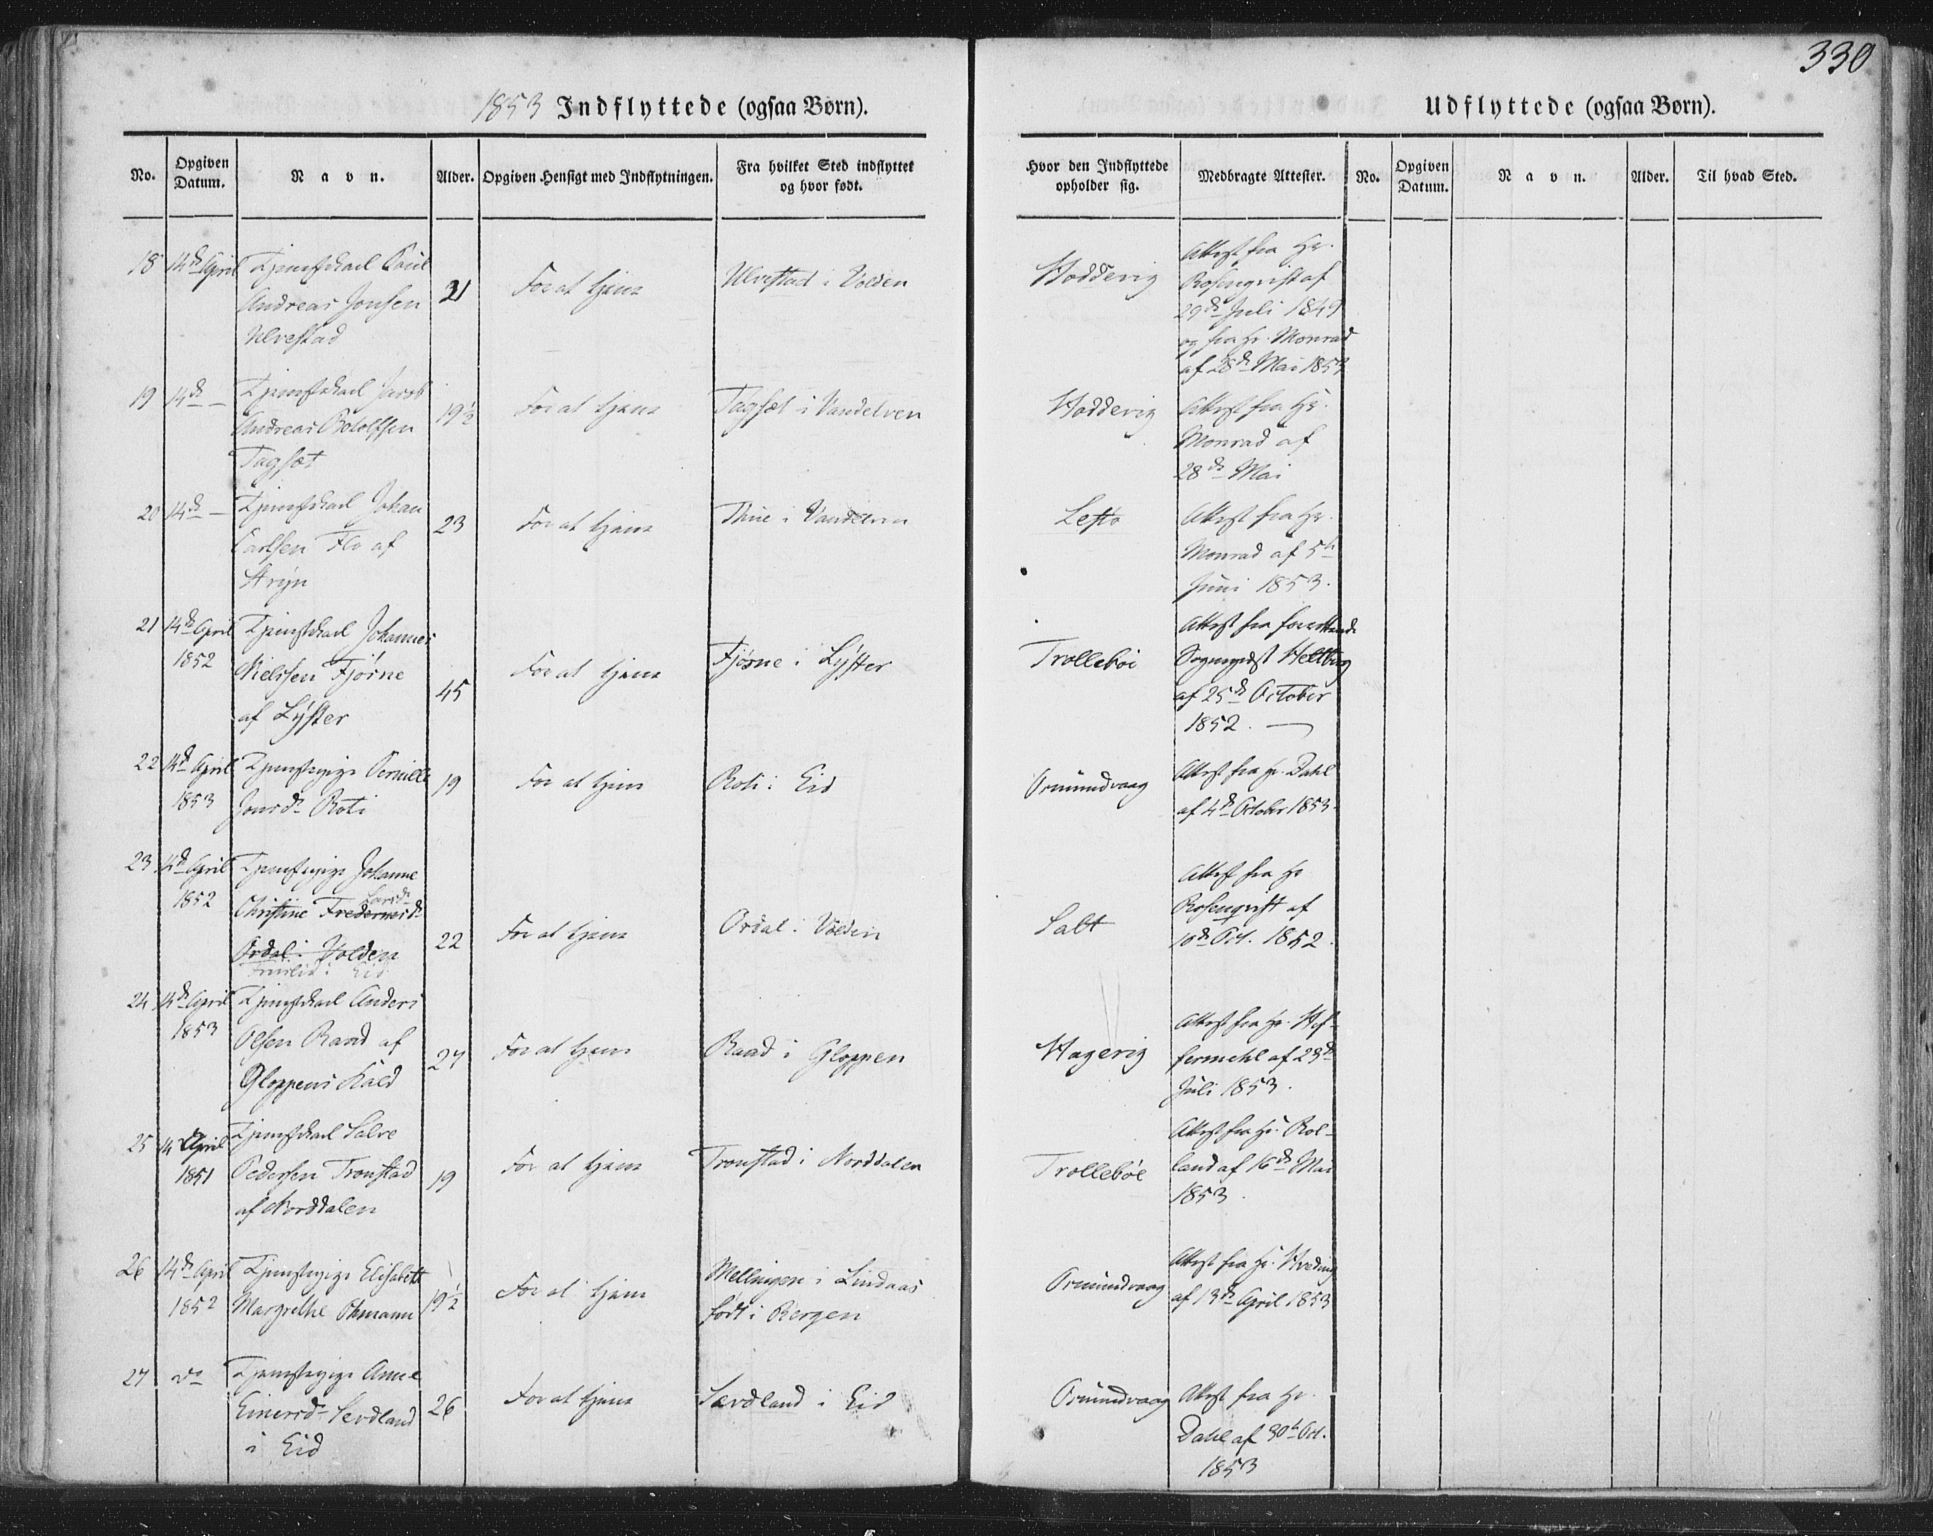 330
1853 Indflyttede (ogsaa Børn).
Udflyttede (ogsaa Børn).
No.
Opgiven Datum.
Navn.
Alder.
Opgiven Hensigt med Indflytningen.
Fra hvilket Sted indflyttet og hvor født.
Hvor den Indflyttede opholder sig.
Medbragte Attester.
No.
Opgiven Datum.
Navn.
Alder.
Til hvad Sted.
18 14de April Tjenestekarl Paul
Andreas Jonsen
Ulvestad
31
For at tjene
Ulvestad i Volden
Hodderig
Attest fra Hr.
Rosenqvist af
29de Juli 1849
og fra Hr. Monrad
af 28de Mai 1853
19 14de — Tjenestekarl Jacob
Andreas Botolfsen
Tagsæt
19½
For at tjene
Tagsæt i Vandelven
Hodderig
Attest fra Hr.
Monrad af
28de Mai
20 14de — Tjenestekarl Johan
Carlsen Flo af
Stryn
23
For at tjene
Thue i Vandelven
Lesto
Attest fra Hr.
Monrad af 5te
Juni 1853.
21 14de April
1852
Tjenestekarl Johannes
Nielssen Fjørne
af Lyster
45
For at tjene
Fjørne i Lyster
Trolleböe
Attest fra
Sognepræst Heltberg
af 25de October
1852. —
22 14de April
1853
Tjenestepige Pernille
Jonsd. Roti
19
For at tjene
Roti i Eid
Ormundvaag
Attest fra Hr. Dahl
af 4de October 1853.
23 14de April
1852
Tjenestepige Johanne
Larsd.
Christine
Ordal i Volden
i Eid
22
For at tjene
Ordal i Volden
Salt
Attest fra Hr
Rosenqvist af
10de Oct. 1852.
24 14de April
1853
Tjenestekarl Anders
Olsen Rand af
Gloppens Kald
27
For at tjene
Raad i Gloppen
Hagerig
Attest fra Hr. Hof-
fermehl af 23de
Juli 1853.
25 14 April
1851
Tjenestekarl Salve
Pedersen Tronstad
af Norddalen
19
For at tjene
Tronstad i Norddalen
Trolleböe
Attest fra Hr. Rol-
land af 16de Mai
1853.
26 14de April
1852
Tjenestepige Elisabeth
Margrethe Ohmann
19½
For at tjene
Mellingen i Lindaas
født i Bergen
Ormundvaag
Attest fra Hr. Hveding
af 13de April 1853
27 do Tjenestepige Anne
Einersd. Sevdland
i Eid
26
For at tjene
Sævdland i Eid
Ormundvaag
Attest fra Hr.
Dahl af 30te Oct.
1853